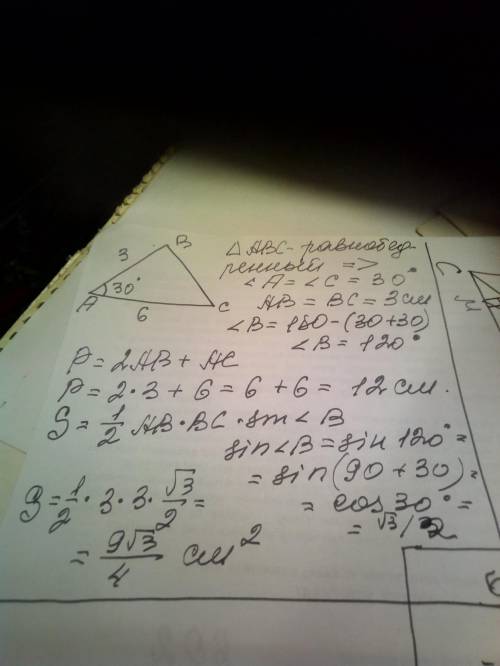 B
3
A
30°
6
C
△ABC - равнобед-
ренный =>
∠A = ∠C = 30°
AB = BC = 3 см
∠B = 180 - (30+30)
∠B = 120°
P = 2AB + AC
P = 2·3 + 6 = 6 + 6 = 12 см.
S = 1/2 AB·BC·sin∠B
sin∠B = sin 120° =
= sin(90+30) =
= cos 30° =
= √3/2
S = 1/2 · 3 · 3 · √3/2 =
= 9√3/4 см²